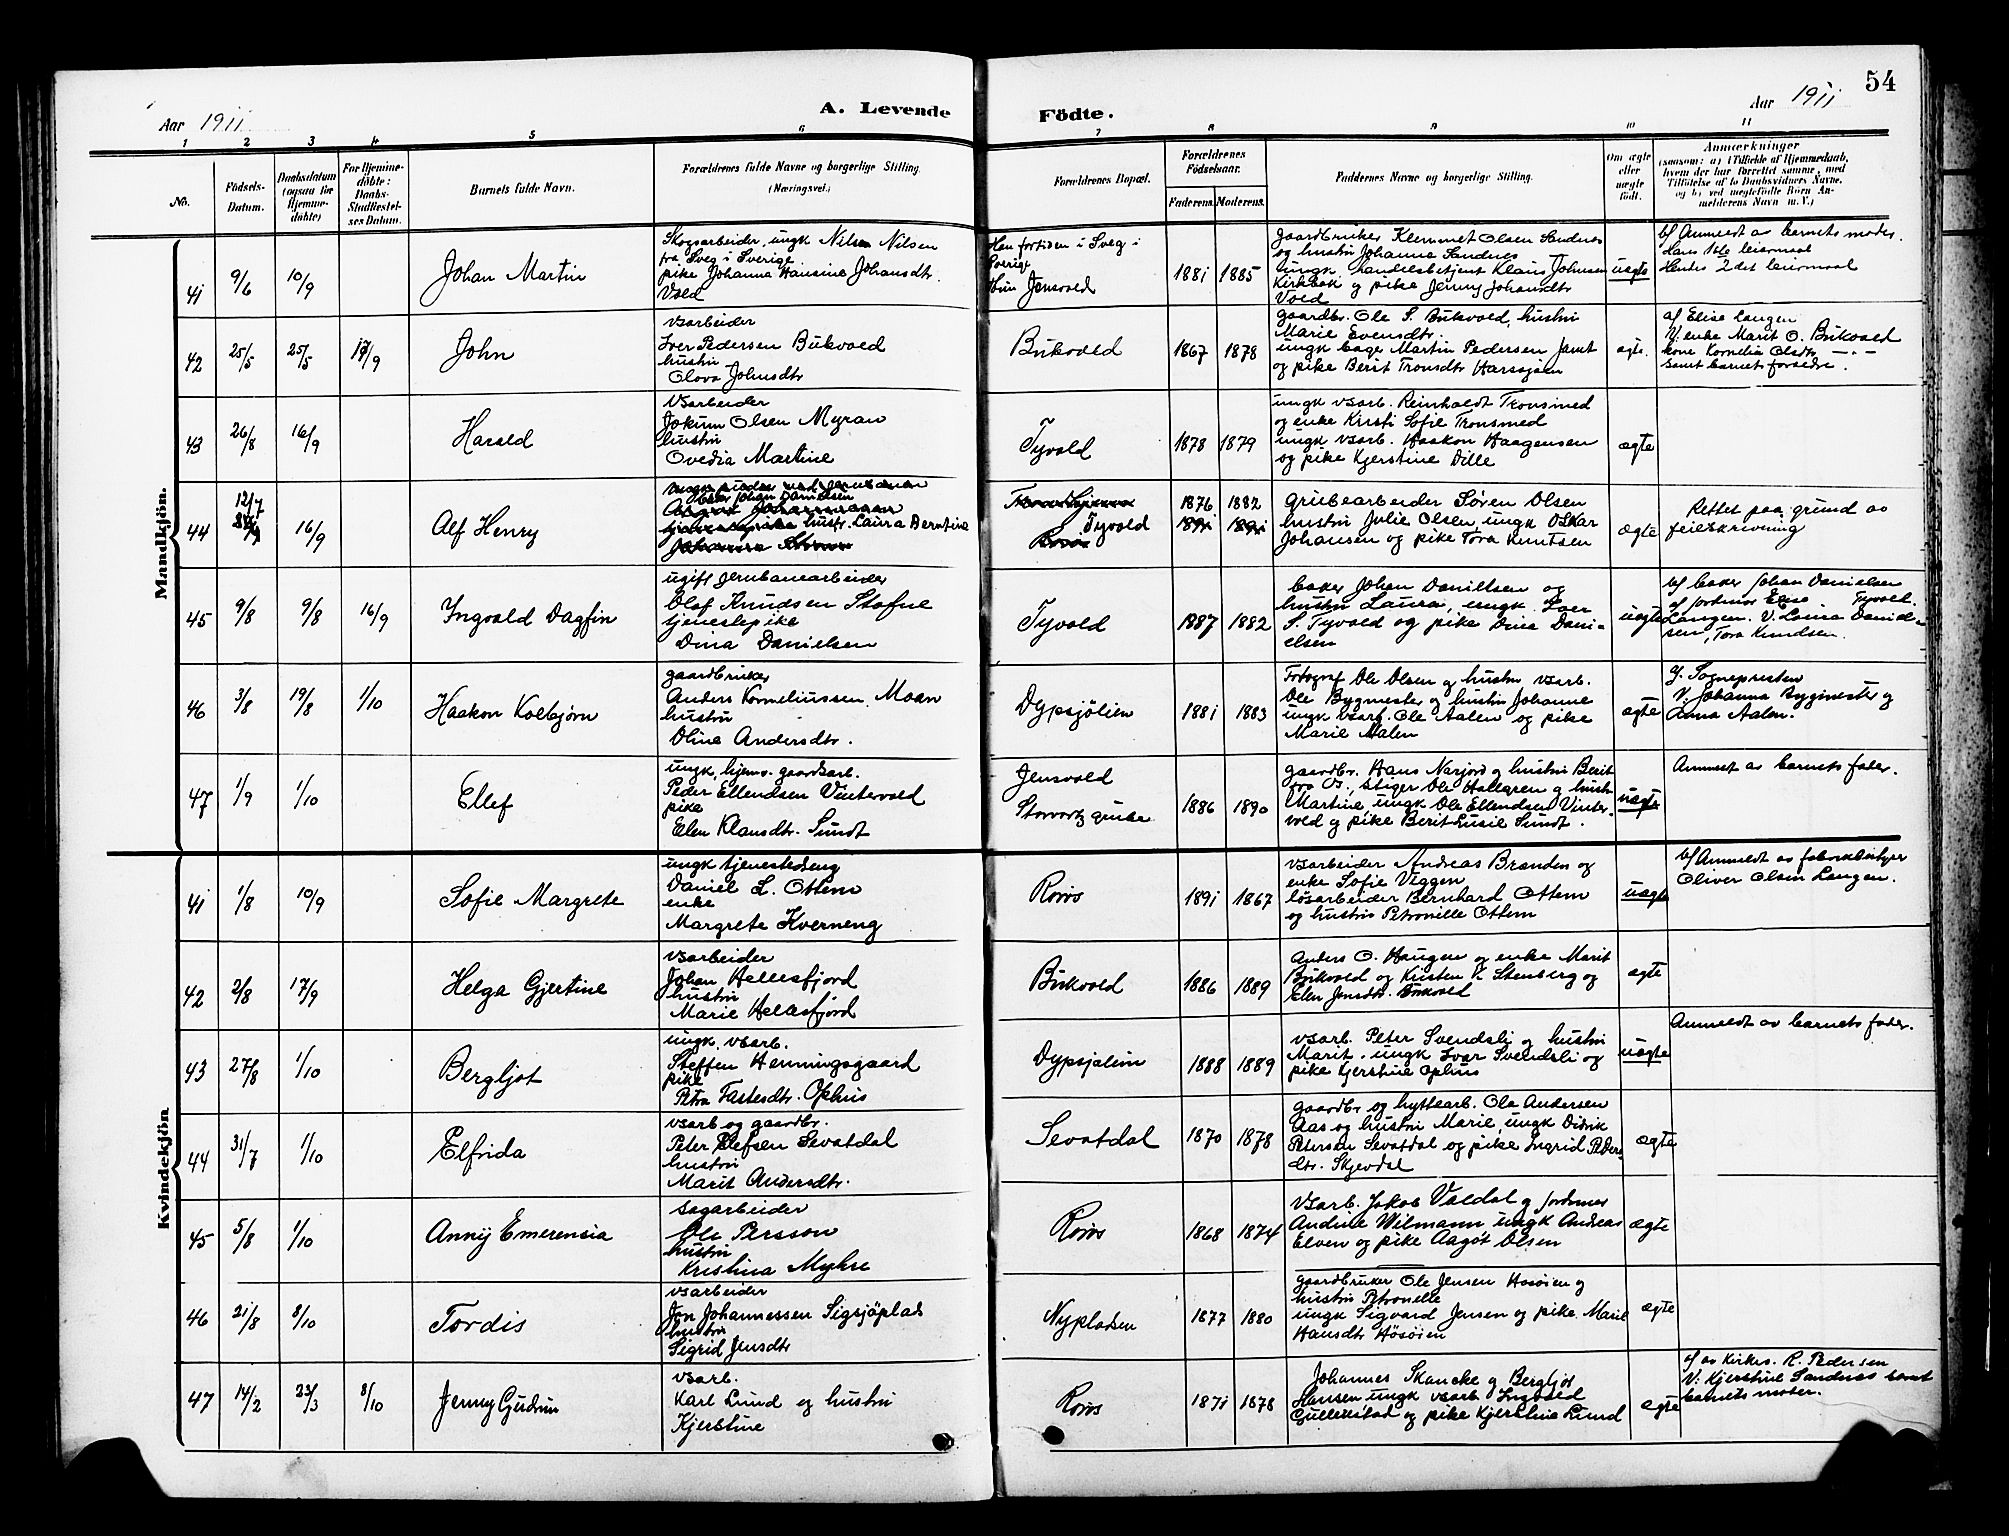 54
Aar 1911
A. Levende
Födte.
Aar 1911
1 2 3 4 5 6 7 8 9 10 11
No.
Födsels-
Datum.
Daabsdatum
(ogsaa for
Hjemme-
döbte)
For Hjemme-
döbte:
Daabs-
Stadfæstel-
ses Datum.
Barnets fulde Navn.
Forældrenes fulde Navne og borgerlige Stilling.
(Næringsvei.)
Forældrenes Bopæl.
Forældrenes
Födselsaar.
Faderens. Moderens.
Faddernes Navne og borgerlige Stilling.
Om ægte
eller
uægte
födt.
Anmærkninger
(saasom: a) i Tilfælde af Hjemmedaab,
hvem der har forrettet samme, med
Tilföielse af to Daabsvidners Navne,
og b) ved uægtefödte Börn An-
melderens Navn m. V.)
Mandkjön.
41 9/6 10/9
Johan Martin
Skogsarbeider, ungk Nils Nilsen
fra Sveg i Sverige
pike Johanna Hansine Johansdtr.
Vold
Han fortiden i Sveg i
Sverige
Hun Jensvold
1881 1885
gaardbruker Klemmet Olsen Sandnes
og hustru Johanne Sandnes
ungk. handelsbetjent Klaus Johnsen
Kirkbak og pike Jenny Johansdtr
Vold
uægte
b/ Anmeldt av barnets moder.
Hans 1ste leiermaal
Hendes 2det leiermaal
42 25/5 25/5 17/9
John
vsarbeider
Iver Pedersen Bukvold
hustru
Olova Johnsdtr
Bukvold
1867 1878
gaardbr. Ole S. Bukvold, hustru
Marie Evensdtr.
ungk bager Martin Pedersen
og pike Berit Tronsdtr Harsjøen
ægte.
af Elise Langen
V: enke Marit O. Bukvold
kone Kornelia Olsdtr — " —
samt barnets forældre.
43 26/8 16/9
Harald
vsarbeider
Jokum Olsen Myran
hustru
Ovedia Martine
Tyvold
1878 1879
ungk vsarb. Reinholdt Tronsmed
og enke Kristi Sofie Tronsmed
ungk vsarb. Haakon Haagensen
og pike Kjerstine Dille
ægte
44 12/7 16/9
Alf Henry
Johan Danielsen
hustr. Laura Berntine
Tyvold
1876 1882
1891 1891
Grubearbeider Søren Olsen
hustru Julie Olsen, ungk Oskar
Johansen og pike Tora Knutsen
ægte
Rettet paa grund av
feilskrivning
45 9/8 9/8 16/9
Ingvald Dagfin
ugift jernbanearbeider
Olaf Knudsen Stofne
tjenestepike
Dina Danielsen
Tyvold
1887 1882
baker Johan Danielsen og
hustru Laura, ungk. Iver
S. Tyvold og pike Dina Dani-
elsen
uægte
b/ baker Johan Danielsen
af jordmor Elise Tyvold.
Langen. V. Laura Daniel-
sen, Tora Knudsen.
46 3/8 19/8 1/10
Haakon Kolbjørn
gaardbruker
Anders Korneliussen Moan
hustru
Oline Andersdtr.
Dypsjølien
1881 1883
Fotograf Ole Olsen og hustru vsarb.
Ole Bygmester og hustru Johanne
ungk vsarb. Ole Aalen og pike
Marie Aalen
ægte
Sognepresten
V. Johanna Bygmester og
Anna Aalen.
47 1/9 1/10
Ellef
ungk. hjemv. gaardsarb.
Peder Ellendsen Vintervold
pike
Elen Klausdtr. Sundt
Jensvold
Storvartz grube
1886 1890
gaardbr. Hans Narjord og hustru Berit
fra Os., Stiger Ole Hallgren og hustr.
Martine ungk Ole Ellendsen Vinter-
vold og pike Berit Lusie Sundt.
uægte
Anmeldt av barnets fader.
Kvindekjön.
41 1/8 10/9
Sofie Margrete
ungk tjenestedreng
Daniel L. Ottem
enke
Margrete Kverneng
Røros
1891 1867
vsarbeider Andreas Brænden og
enke Sofie Viggen
løsarbeider Bernhard Ottem
og hustru Petronille Ottem
uægte
b/ Anmeldt av fabrikbestyrer
Oliver Olsen Langen.
42 2/8 17/9
Helga Gjertine
vsarbeider
Johan Hellesfjord
hustru
Marie Hellesfjord
Bukvold
1886 1889
Anders O. Haugen og enke Marit
Bukvold og Kristen V. Stensberg og
Elen Jensdtr. Bukvold
ægte
43 27/8 1/10
Bergljot
ungk. vsarb.
Steffen Henningsgaard
pike
Petra Fastesdtr. Ophus
Dypsjølien
1888 1889
vsarb. Peter Svendsli og hustru
Marit. ungk Ivar Svendsli og
pike Kjerstine Ophus
uægte
Anmeldt av barnets fader.
44 31/7 1/10
Elfrida
vsarb og gaardbr.
Peter Elefsen Sevatdal
hustru
Marit Andersdtr.
Sevatdal
1870 1878
gaardbr og hyttearb. Ole Andersen
Aas og hustru Marie, ungk Didrik
Petersen Sevatdal og pike Ingrid Peders-
dtr. Skjevdal
ægte
45 5/8 1/10
Anny Emerensia
sagarbeider
Ole Persson
hustru
Kristina Myhre
Røros
1868 1874
vsarb. Jakob Valdal og jordemor
Andrine Wilmann ungk Andreas
Elven og pike Aagot Olsen
ægte
46 21/8 8/10
Tordis
vsarbeider
Jon Johannessen Sigsjöplads
hustru
Sigrid Jensdtr
Nypladsen
1877 1880
gaardbruker Ole Jensen Hosøien og
hustru Petronelle
ungk Sigvard Jensen og pike Marie
Hansdtr Høsøien
ægte
47 14/2 23/3 8/10
Jenny Gudrun
vsarb.
Karl Lund og hustru
Kjerstine
Røros
1871 1878
Johannes Skancke og Bergljot
Hansen ungk vsarb. Ingvald
Gullikstad og pike Kjerstine Lund
ægte
af av Kirkes. R. Pedersen
V: Kjerstine Sandnes samt
barnets moter.